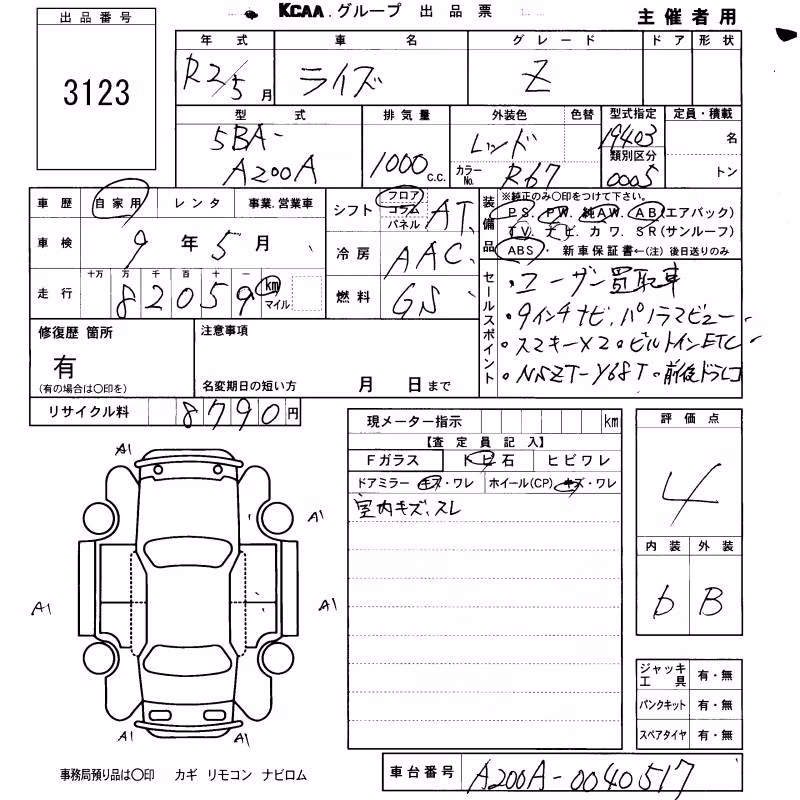 KCAA グループ 出品票
主催者用
出品番号
3123
年式 車名 グレード ドア 形状
R2/5月 ライズ Z
型式 排気量 外装色 色替 型式指定 定員・積載
5BA-
A200A
1000 c.c.
レッド
カラーNo. R67
19403
類別区分
0005
名
トン
車歴 自家用 レンタ 事業.営業車
車検 9年5月
走行 十万 万 千 百 十 一
82059 km マイル
シフト フロア コラム パネル AT
冷房 AAC
燃料 GS
装備品
※純正のみ○印をつけて下さい。
PS. PW. 純AW. AB(エアバック)
TV. ナビ. カワ. SR(サンルーフ)
ABS. ・ 新車保証書←(注) 後日送りのみ
セールスポイント
・ユーザー買取車
・9インチナビ.パノラマビュー
・スマキーX2・ビルトインETC
・NSZT-Y68T・前後ドラレコ
修復歴 箇所
有
(有の場合は○印を)
注意事項
名変期日の短い方 月 日まで
リサイクル料 8790円
現メーター指示 km
【査定員記入】
Fガラス トビ石 ヒビワレ
ドアミラー キズ・ワレ ホイール(CP) キズ・ワレ
室内キズ、スレ
評価点
4
内装 外装
b B
A1
A1
A1
A1
A1
A1
ジャッキ工具 有・無
パンクキット 有・無
スペアタイヤ 有・無
事務局預り品は○印 カギ リモコン ナビロム
車台番号 A200A-0040517